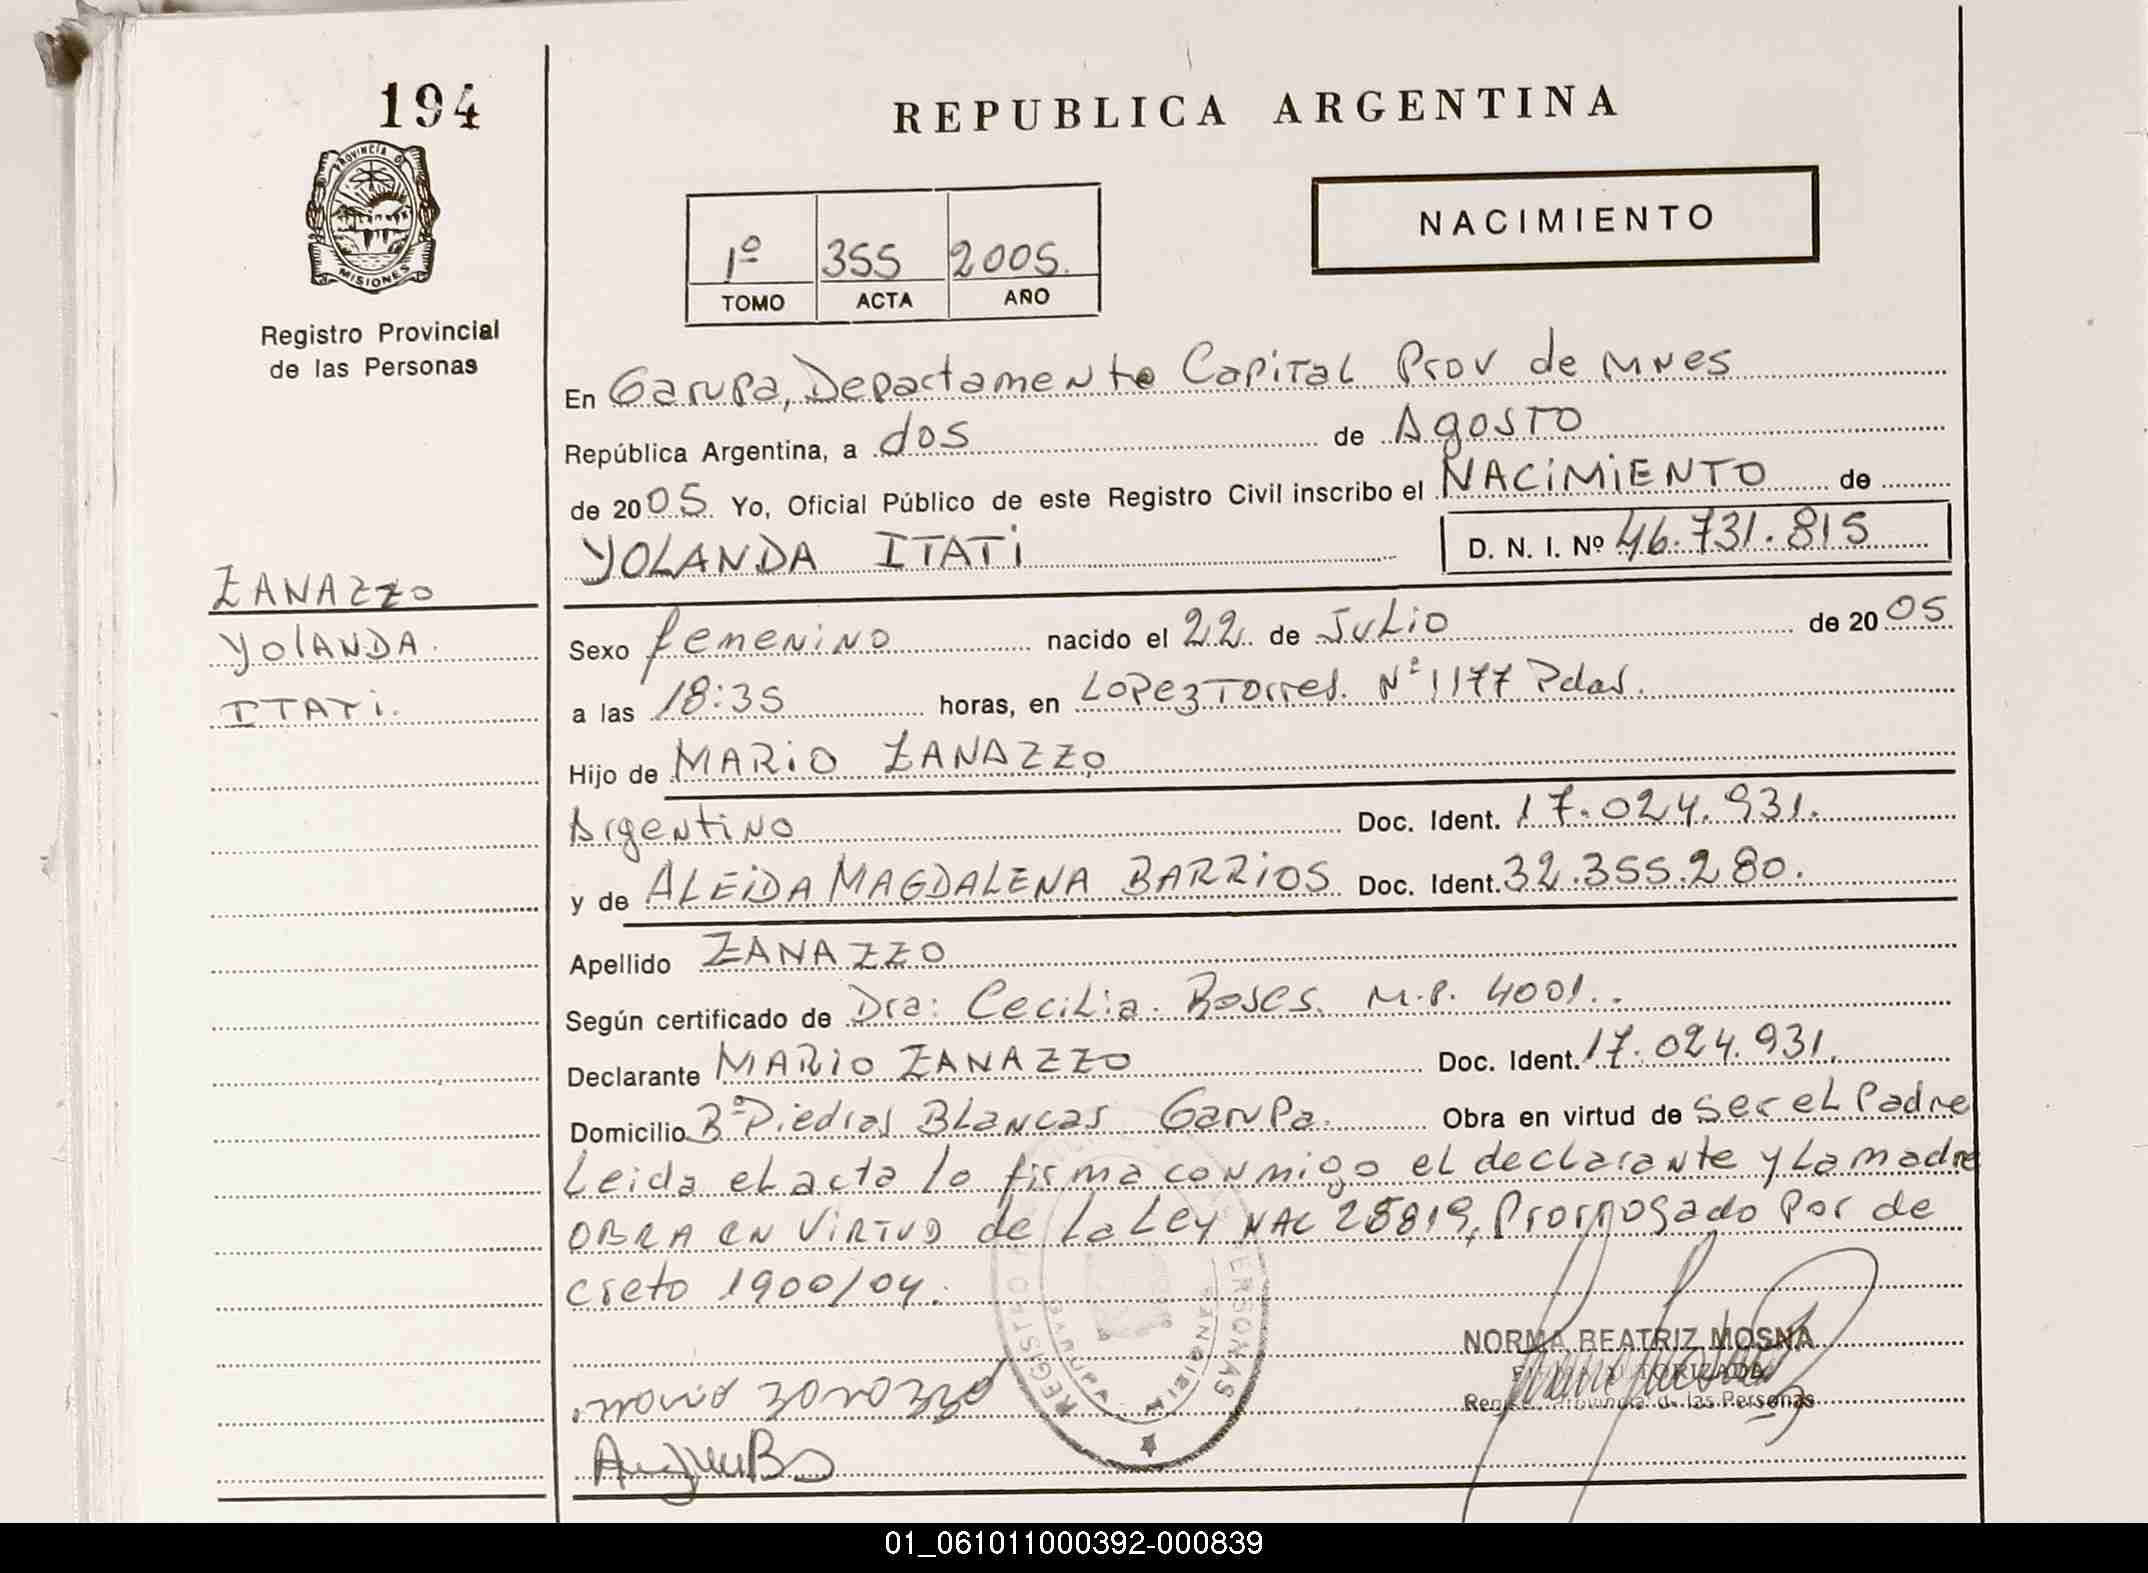 194
PROVINCIA D
MISIONES
Registro Provincial
de las Personas
REPUBLICA ARGENTINA
NACIMIENTO
1º 355 2005.
TOMO ACTA AÑO
En Garupa, Departamento Capital Prov de Mnes
República Argentina, a dos de Agosto
de 2005. Yo, Oficial Público de este Registro Civil inscribo el NACiMiENTO de
YOLANDA ITATi D. N. I. Nº 46.731.815
ZANAZZO
YolANDA.
ITATi.
Sexo femenino nacido el 22 de Julio de 2005.
a las 18:35 horas, en Lopez Torres. Nº 1177 Pdas.
Hijo de MARiO ZANAZZO
Argentino Doc. Ident. 17.024.931.
y de ALEiDA MAGDALENA BARRiOS Doc. Ident. 32.355.280.
Apellido ZANAZZO
Según certificado de Dra: Cecilia. M.P. 4001..
Declarante MARiO ZANAZZO Doc. Ident. 17.024.931.
Domicilio Bº Piedras Blancas Garupa. Obra en virtud de ser el Padre
Leida el acta lo firma conmigo el declarante y la madre
OBRA en ViRTUD de La Ley NAC 25819, Prorrogado Por de
creto 1900/04.
NORMA BEATRIZ MOSNA
AUTORIZADA
Registro Provincial de las Personas
REGISTRO PERSONAS
GARUPA
01_061011000392-000839